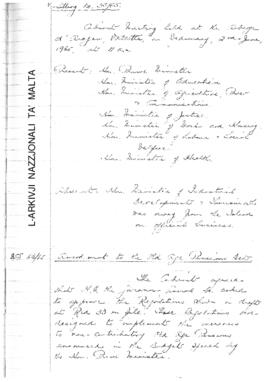 Cabinet Meeting held at the
on Wednesday, 2nd June,
1965, at 11 a.m.
Present: Hon. Prime Minister
Hon. Minister of Education
Hon. Minister of Agriculture, Power
& Communications
Hon. Minister of Justice
Hon. Minister of Works and Housing
Hon. Minister of Labour & Social
Welfare
Hon. Minister of Health
L-ARKIVJI NAZZJONALI TA MALTA
Absent: Hon. Minister of Industrial
Development & Tourism who
was away from the Island
on official business.
Amendment to the Old Age Pensions Act
The Cabinet agreed
that H.E. the Governor should be asked
to approve the Regulations shown in draft
at Red 33 in file. These Regulations are
designed to implement the increases
to non-contributory Old Age Pensions
announced in the Budget Speech by
the Hon. Prime Minister.